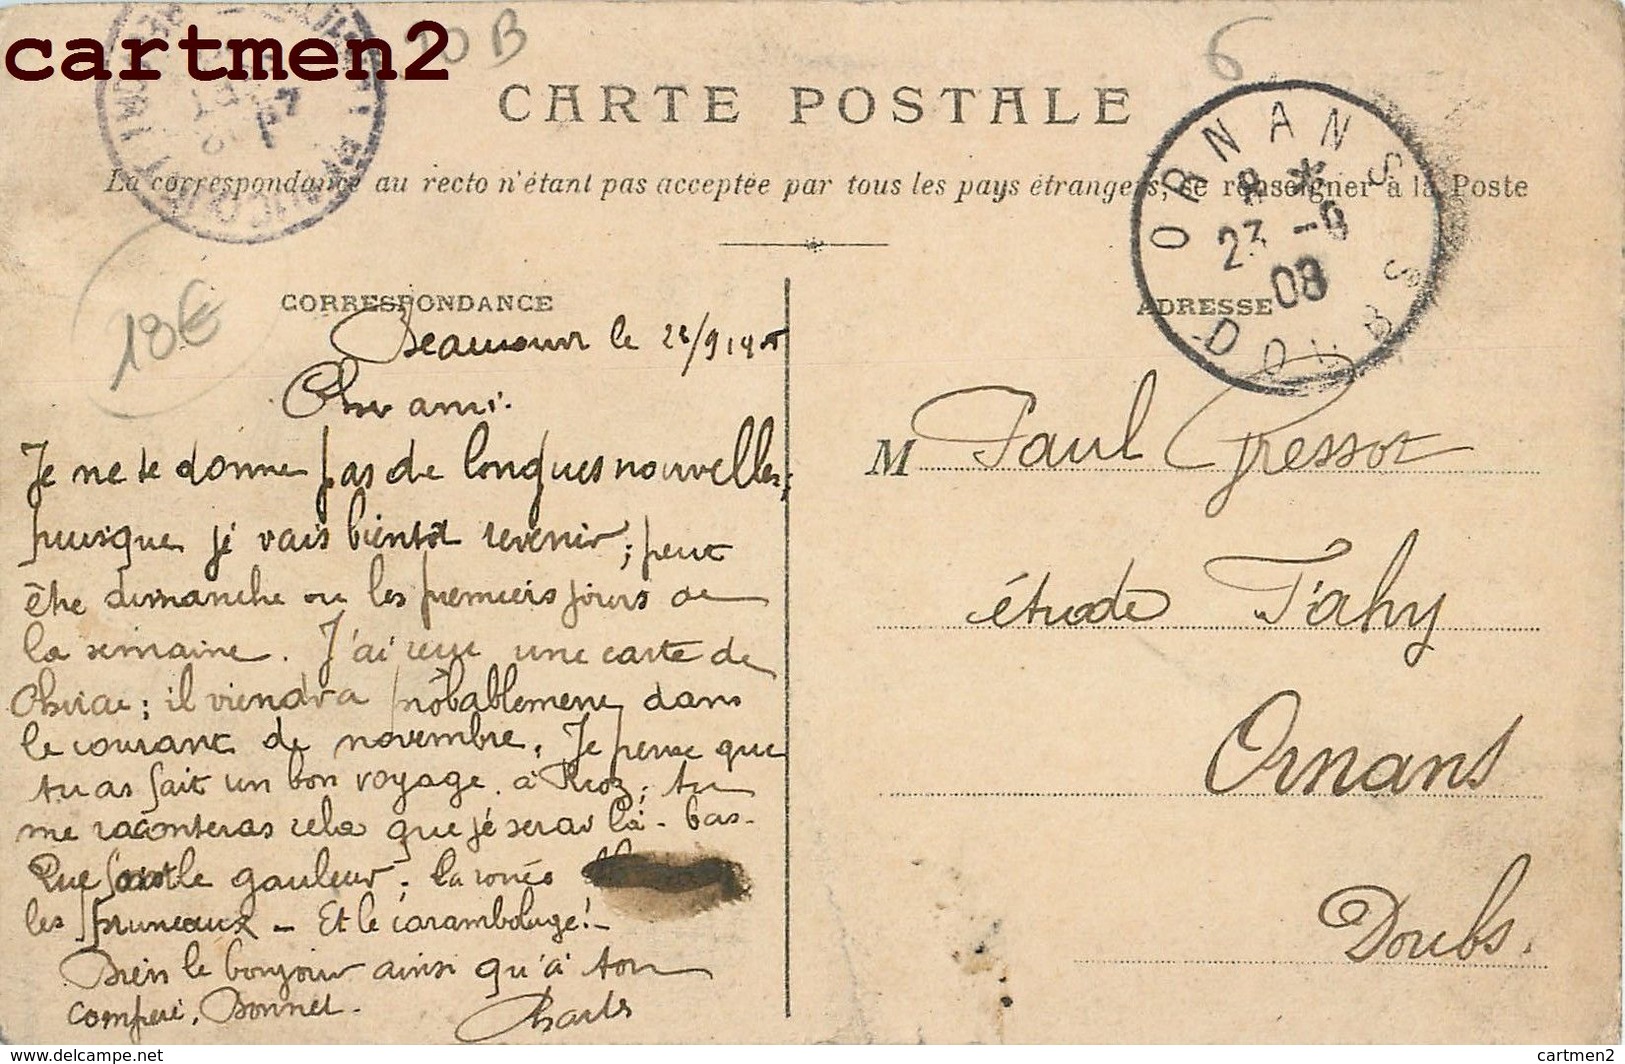 cartmen2
10 B
6
CARTE POSTALE
La correspondance au recto n'étant pas acceptée par tous les pays étrangers, se renseigner à la Poste
ORNANS
23 -9
08
DOUBS
18€
CORRESPONDANCE
ADRESSE
le 22/9
Cher ami.
Je ne te donne pas de longues nouvelles,
puisque je vais bientôt revenir, peut
être dimanche ou les premiers jours de
la semaine. J'ai reçu une carte de
il viendra probablement dans
le courant de novembre. Je pense que
tu as fait un bon voyage à Rioz; tu
me raconteras cela que je serai là-bas.
Que le gauleur;
les pruneaux - Et le carambolage! -
Bien le bonjour ainsi qu'à ton
compère, Bonnet.
Charles
M Paul Gressot
étude Fahy
Ornans
Doubs.
https://www.delcampe.net
cartmen2